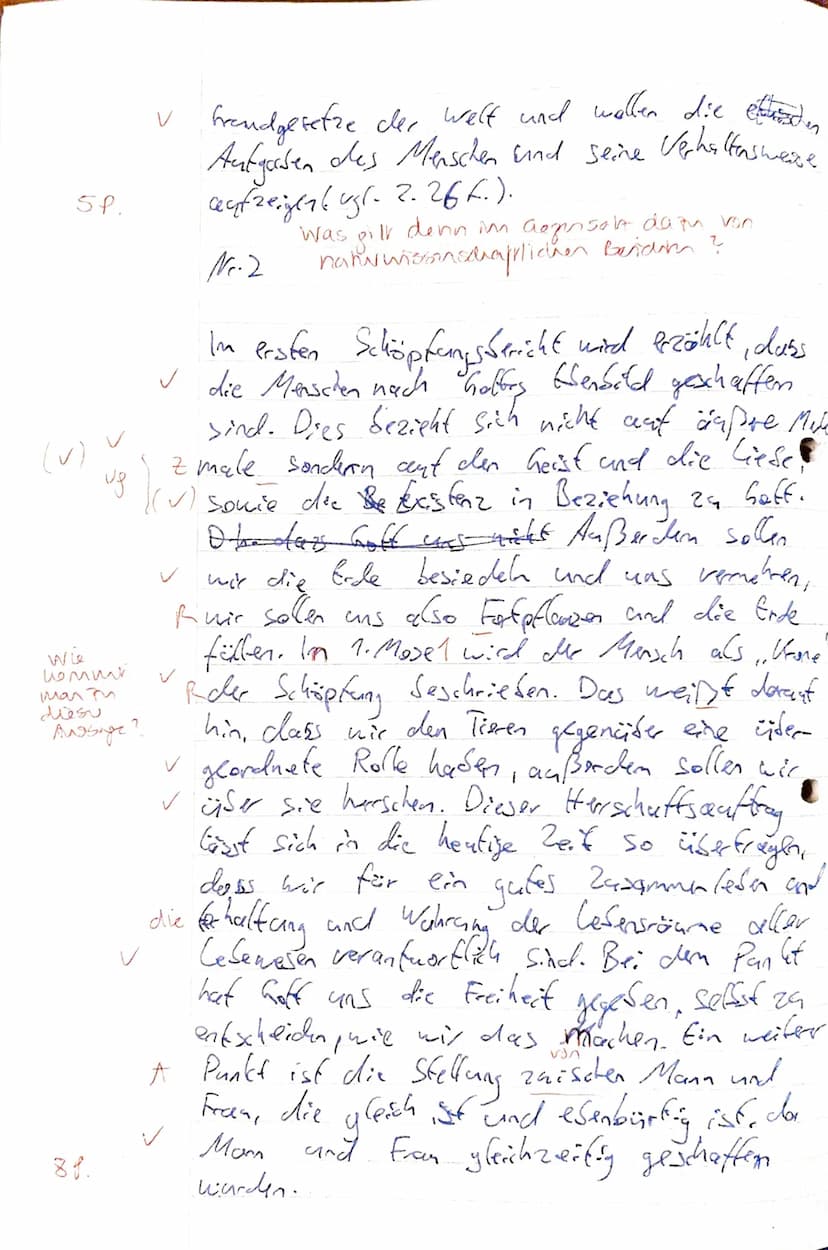 ✓ Grundgesetze der Welt und wollen die ethischen
Aufgaben des Menschen und seine Verhaltensweise
5P. aufzeigen (vgl. Z. 26 f.).
Was gilt denn im Gegensatz dazu von
naturwissenschaftlichen Berichten?
Nr. 2
Im ersten Schöpfungsbericht wird erzählt, dass
✓ die Menschen nach Gottes Ebenbild geschaffen
✓ sind. Dies bezieht sich nicht auf äußre Merk
(✓) Z male sondern auf den Geist und die Liebe,
(✓) sowie die Existenz in Beziehung zu Gott.
Außerdem sollen
✓ wir die Erde besiedeln und uns vermehren,
R wir sollen uns also Fortpflanzen und die Erde
füllen. Im 1. Mose 1 wird der Mensch als „Krone"
Wie
kommt
man zu
dieser
Aussage?
✓ R der Schöpfung beschrieben. Das weißt darauf
hin, dass wir den Tieren gegenüber eine über-
✓ geordnete Rolle haben, außerdem sollen wir
✓ über sie herrschen. Dieser Herrschaftsauftrag
lässt sich in die heutige Zeit so übertragen,
dass wir für ein gutes Zusammenleben und
die Erhaltung und Wahrung der Lebensräume aller
✓ Lebewesen verantwortlich sind. Bei dem Punkt
hat Gott uns die Freiheit gegeben, selbst zu
entscheiden, wie wir das machen. Ein weiterer
von
A Punkt ist die Stellung zwischen Mann und
Frau, die gleich ist und ebenbürtig ist, da
✓ Mann und Frau gleichzeitig geschaffen
8P. wurden.